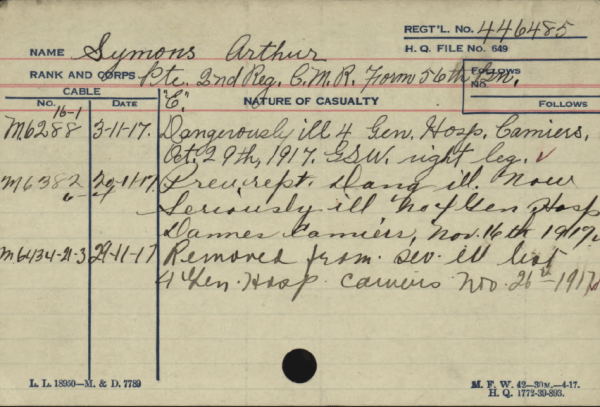 REGT'L. No. 446485
NAME Symons Arthur
H. Q. FILE No. 649
RANK AND CORPS Pte. 2nd Reg. C.M.R. Form 56th Bn.
FOLLOWS
No.
CABLE
No. DATE "C." NATURE OF CASUALTY FOLLOWS
16-1
M6288 3-11-17. Dangerously ill 4 Gen. Hosp. Camiers,
Oct. 29th, 1917. GSW. right leg.
M6382 11-17 Prev. rept. Dang ill. Now
6
Seriously ill No 4 Gen Hosp
Dannes Camiers, Nov. 16th 1917.
M6434-21-3 29-11-17 Removed from ser. ill list
4 Gen. Hosp. Camiers Nov. 26th 1917
L. L. 18950—M. & D. 7789
M. F. W. 42—30M.—4-17.
H. Q. 1772-39-893.